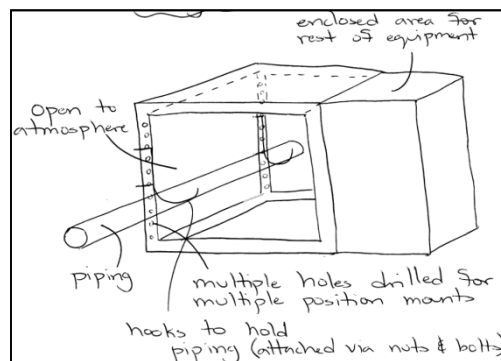 enclosed area for
rest of equipment
open to
atmosphere
piping
multiple holes drilled for
multiple position mounts
hooks to hold
piping (attached via nuts & bolts)